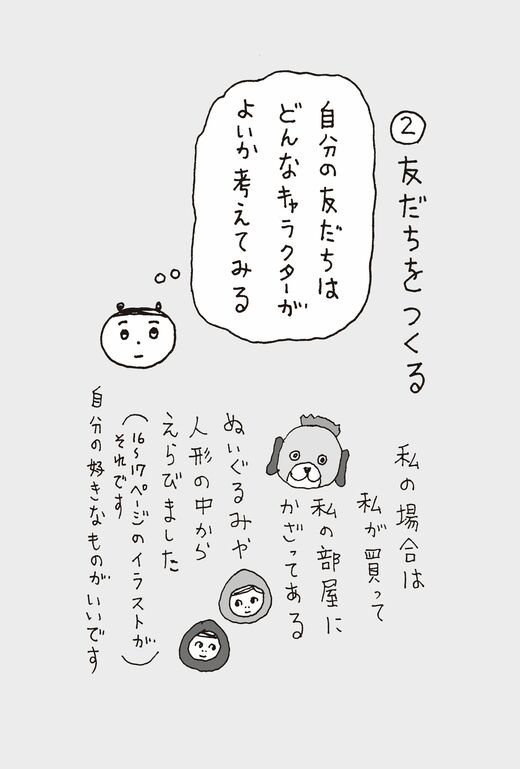 ②友だちをつくる
自分の友だちは
どんなキャラクターが
よいか考えてみる
私の場合は
私が買って
私の部屋に
かざってある
ぬいぐるみや
人形の中から
えらびました
(16〜17ページのイラストが
それです)
自分の好きなものがいいです